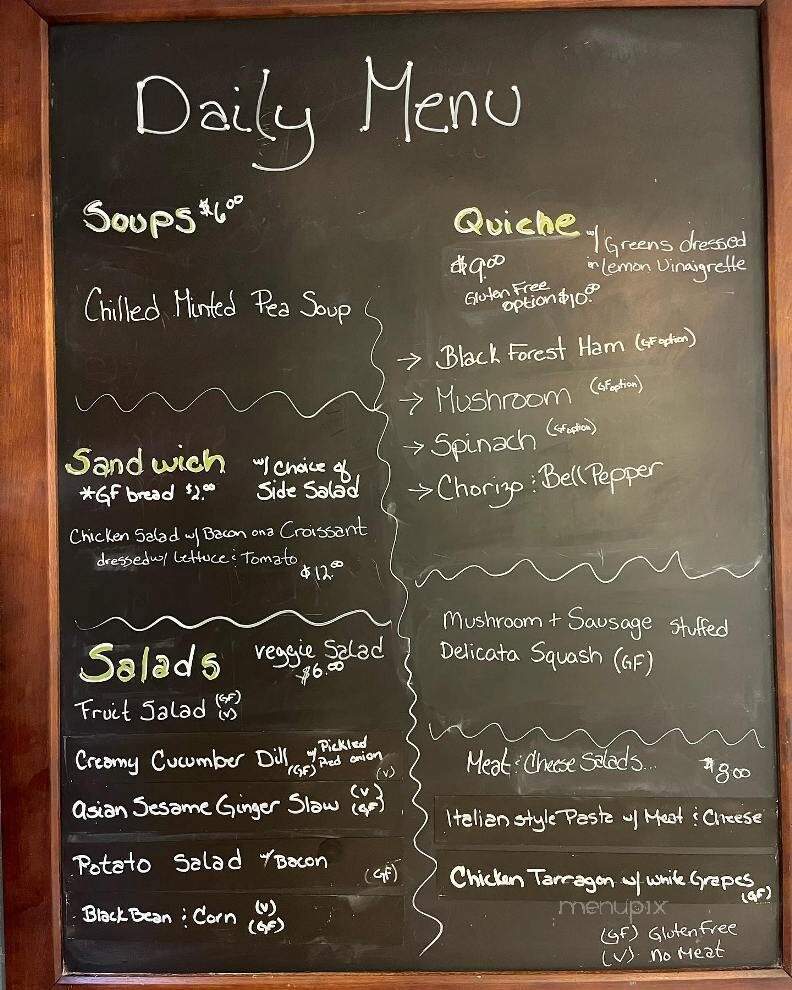 Daily Menu
Soups $6.00
Chilled Minted Pea Soup
Sandwich w/ choice of
*GF bread $2.00 Side Salad
Chicken Salad w/ Bacon on a Croissant
dressed w/ Lettuce & Tomato
$12.00
Salads veggie Salad
$6.00
Fruit Salad (GF)
(V)
Creamy Cucumber Dill w/ Pickled
(GF) Red onion
(V)
Asian Sesame Ginger Slaw (V)
(GF)
Potato Salad w/ Bacon
(GF)
Black Bean & Corn (V)
(GF)
Quiche w/ Greens dressed
$9.00 in Lemon Vinaigrette
Gluten Free
option $10.00
→ Black Forest Ham (GF option)
→ Mushroom (GF option)
→ Spinach (GF option)
→ Chorizo & Bell Pepper
Mushroom + Sausage Stuffed
Delicata Squash (GF)
Meat & Cheese Salads... $8.00
Italian style Pasta w/ Meat & Cheese
Chicken Tarragon w/ white Grapes
(GF)
menupix
(GF) Gluten Free
(V) no Meat